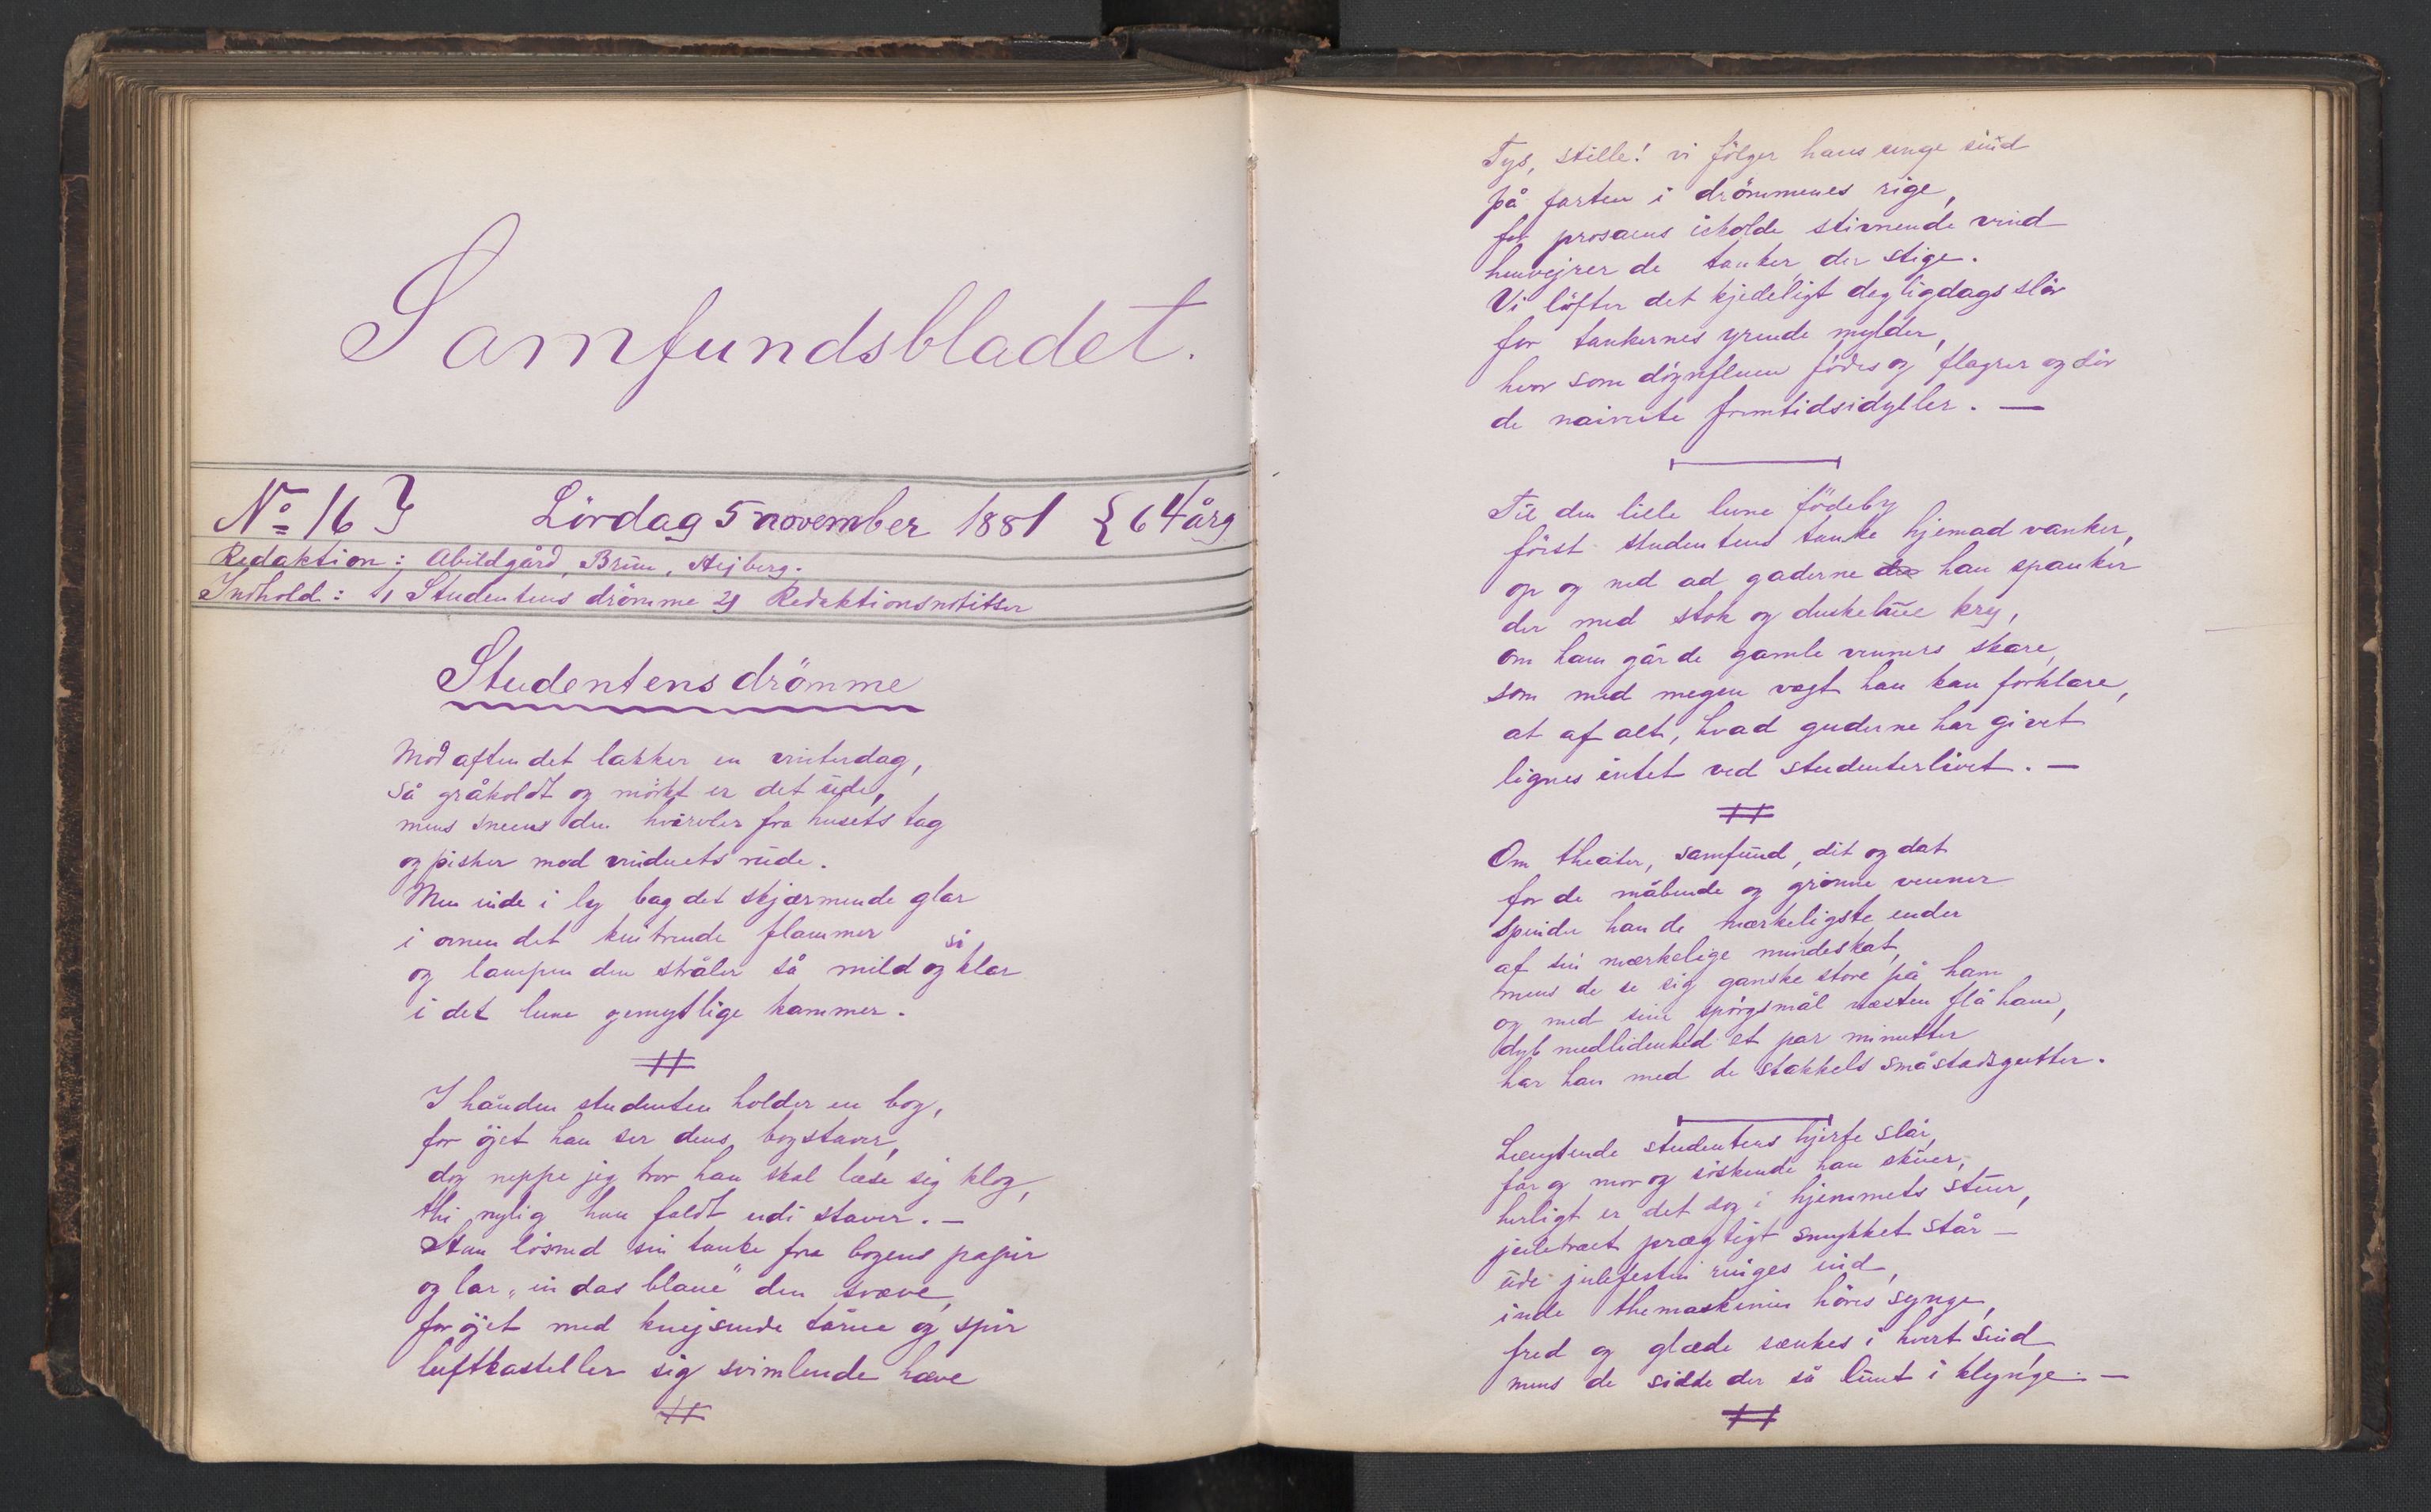 Samfundsbladet.
No 16 } Lördag 5 november 1881 { 64 årg
Redaktion: Abildgård, Bruu, Hejberg.
Indhold: 1, Studentens drömme 2, Redaktionsnotitser
Studentens drömme
Mod aften det lakker en vinterdag,
så gråkoldt og mörkt er det ude,
mens sneens der hvirvler fra husets tag
og pisker mod vinduets rude.
Men inde i ly bag det skjærmende glar
i ovnen det knitrende flammer
og lampen den stråler så mild og så klar
i det lune gemytlige kammer.
I hånden studenten holder en bog,
for öjet han ser dens bogstaver,
dog neppe jeg tror han skal læse sig klog,
thi nylig han faldt udi staver. —
Han lösned sin tanke fra bogens papir
og lar „in das blaue" den svæve,
for öjet med knejsende tårne og spir
luftkasteller sig svimlende hæve
Tys, stille! vi fölger hans unge sind
på farten i drömmenes rige,
før prosaens iskolde stivnende vind
henvejrer de tanker der stige.
Vi löfter det kjedeligt dagligdags slör
for tankernes yrende mylder,
hvor som dögnfluen födes og flagrer og dör
de naiveste fremtidsidyller. —
Til den lille lune födeby
först studentens tanke hjemad vanker,
op og ned ad gaderne der han spanker
der med stok og duskelue kry,
om ham går de gamle venners skare,
som med megen vægt han kan forklare,
at af alt, hvad guderne har givet
lignes intet ved studenterlivet. —
Om theater, samfund, dit og dat
for de måbende og grönne venner
spinder han de mærkeligste ender
af sin mærkelige mindeskat,
mens de se sig ganske store på ham
og med sine spörgsmål næsten flå ham,
dyb medlidenhed et par minutter
har han med de stakkels småstadsgutter.
Længtende studentens hjerte slår,
far og mor og söskende han skuer,
herligt er det dog i hjemmets stuer,
juletræet prægtigt smykket står —
ude julefesten ringes ind,
inde themaskinen höres synge,
fred og glæde sænkes i hvert sind
mens de sidde der så lunt i klynge. —